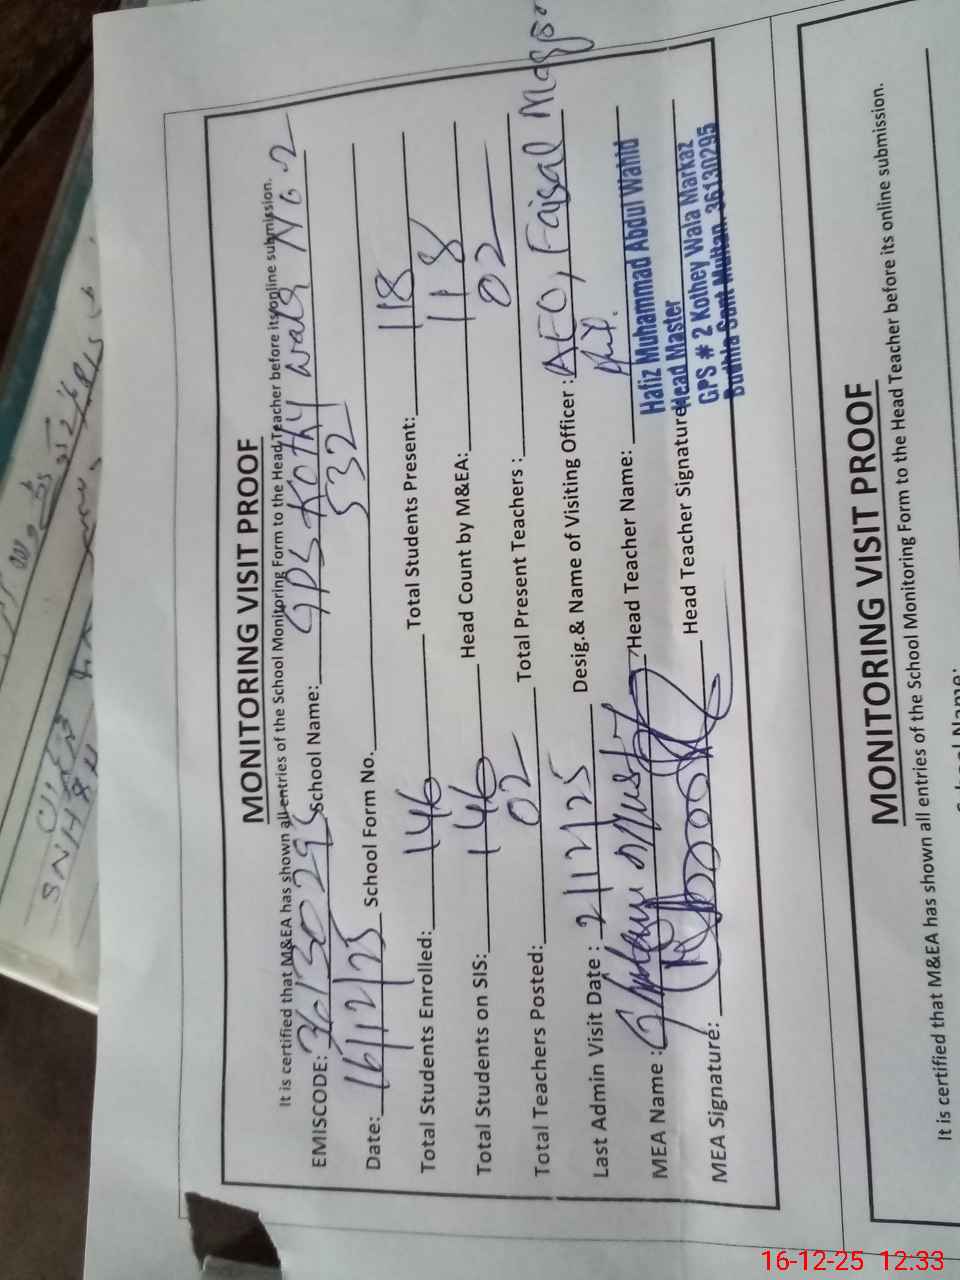 MONITORING VISIT PROOF
It is certified that M&EA has shown all entries of the School Monitoring Form to the Head Teacher before its online submission.
EMISCODE: 36130295 School Name: GPS Kothy wala No. 2
Date: 16/12/25 School Form No. 532
Total Students Enrolled: 146 Total Students Present: 118
Total Students on SIS: 146 Head Count by M&EA: 118
Total Teachers Posted: 02 Total Present Teachers : 02
Last Admin Visit Date : 2/12/25 Desig.& Name of Visiting Officer : AEO, Faisal
MEA Name : Head Teacher Name:
MEA Signature: Head Teacher Signature
Hafiz Muhammad Abdul Wahid
Head Master
GPS # 2 Kothey Wala Markaz
Budhla Sant Multan. 36130295
MONITORING VISIT PROOF
It is certified that M&EA has shown all entries of the School Monitoring Form to the Head Teacher before its online submission.
School Name:
16-12-25 12:33